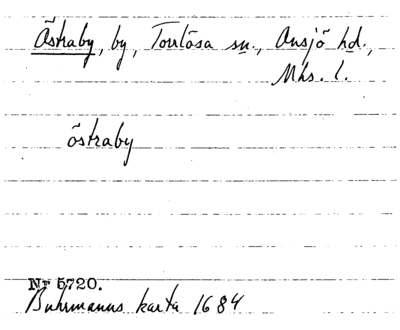 Östraby, by, Torrlösa sn., Onsjö hd.,
Mhs. l.
östraby
Nr 5720.
Buhrmanns karta 1684